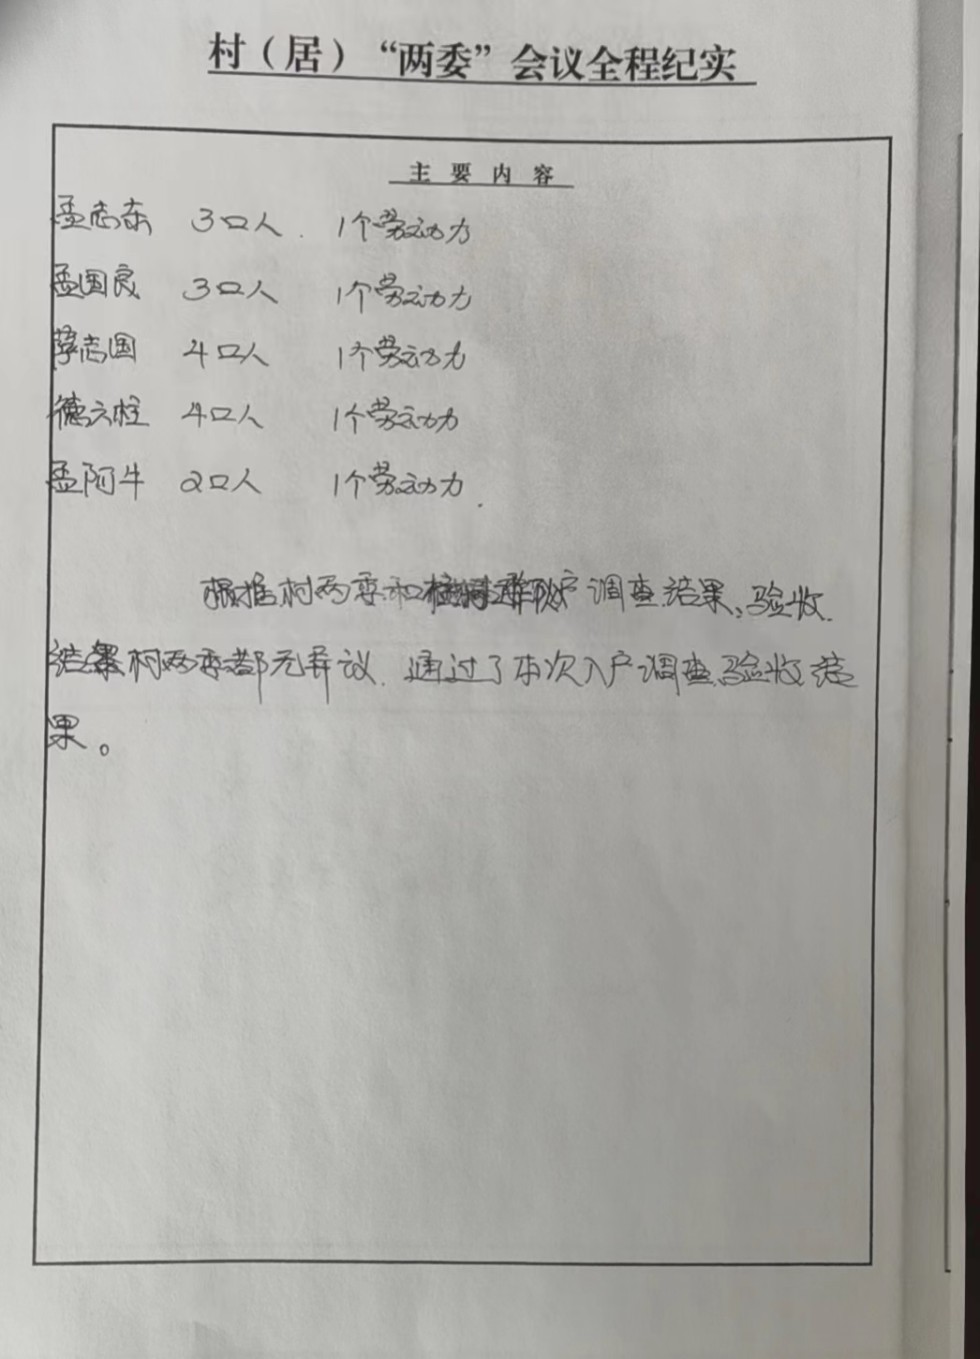 村（居）“两委”会议全程纪实
主要内容
孟志东 3口人. 1个劳动力
孟国良 3口人 1个劳动力
薛志国 4口人 1个劳动力
德六柱 4口人 1个劳动力
孟阿牛 2口人 1个劳动力.
根据村两委和 户调查结果、验收.
结果村两委都无异议. 通过了本次入户调查验收结
果。